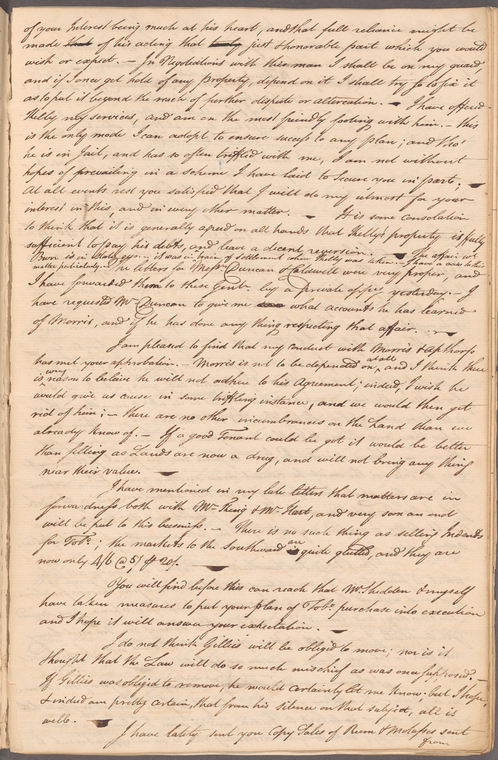 of your Interest being much at his heart, and that full reliance might be
made that of his acting that just & honorable part which you would
wish or expect. — In Negotiations with this man I shall be on my guard,
and if I once get hold of any Property, depend on it I shall try so to fix it
as to put it beyond the reach of further dispute or altercation. — I have offered
Kelly my services, and am on the most friendly footing with him. — this
is the only mode I can adopt to ensure success to any plan; and tho'
he is in Jail, and has so often trifled with me, I am not without
hopes of prevailing in a scheme I have laid to secure you in part;
At all events rest you satisfied that I will do my utmost for your
interest in this, and in every other matter. — It is some consolation
to think that it is generally agreed on all hands that Kelly's property is fully
sufficient to pay his debt, and leave a decent reversion. — The affair with
Burn is in it was in train of settlement when Kelly was taken
matter particularly. — The letters for Mess. Duncan & were very proper, and
I have forwarded them to these Gent. by a private opp'y yesterday. — I
have requested Mr Duncan to give me what accounts he has learned
of Morris, and if he has done any thing respecting that affair.
I am pleased to find that my conduct with Morris & Apthorp
has met your approbation. — Morris is not to be depended on at all, and I think there
is every reason to believe he will not adhere to his Agreement; indeed, I wish he
would give us cause in some trifling instance, and we would then get
rid of him; — there are no other incumbrances on the Land than we
already know of. — If a good Tenant could be got it would be better
than selling as Lands are now a drug, and will not bring any thing
near their value.
I have mentioned in my late letters that matters are in
forwardness both with Mr & Mr Hart, and very soon an end
will be put to this business. — There is no such thing as selling
for Tobo; the markets to the Southward are quite glutted, and they are
now only 4/6 @ 5/ 20/.
You will find before this can reach that Mr Shedden & myself
have taken measures to put your plan of Tobo. purchase into execution
and I hope it will answer your expectation.
I do not think Gillies will be obliged to move; nor is it
thought that the Law will do so much mischief as was once supposed. —
If Gillies was obliged to remove, he would certainly let me know. but I hope,
& indeed am pretty certain, that from his silence on that subject, all is
well.
I have lately sent you Copy Sales of Rum & Molasses sent
from